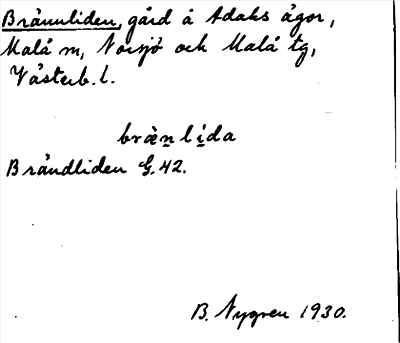 Brännliden, gård å Adaks ägor,
Malå sn, Norsjö och Malå tg,
Västerb. l.
bræ̀nlída
Brändliden G. 42.
B. Nygren 1930.